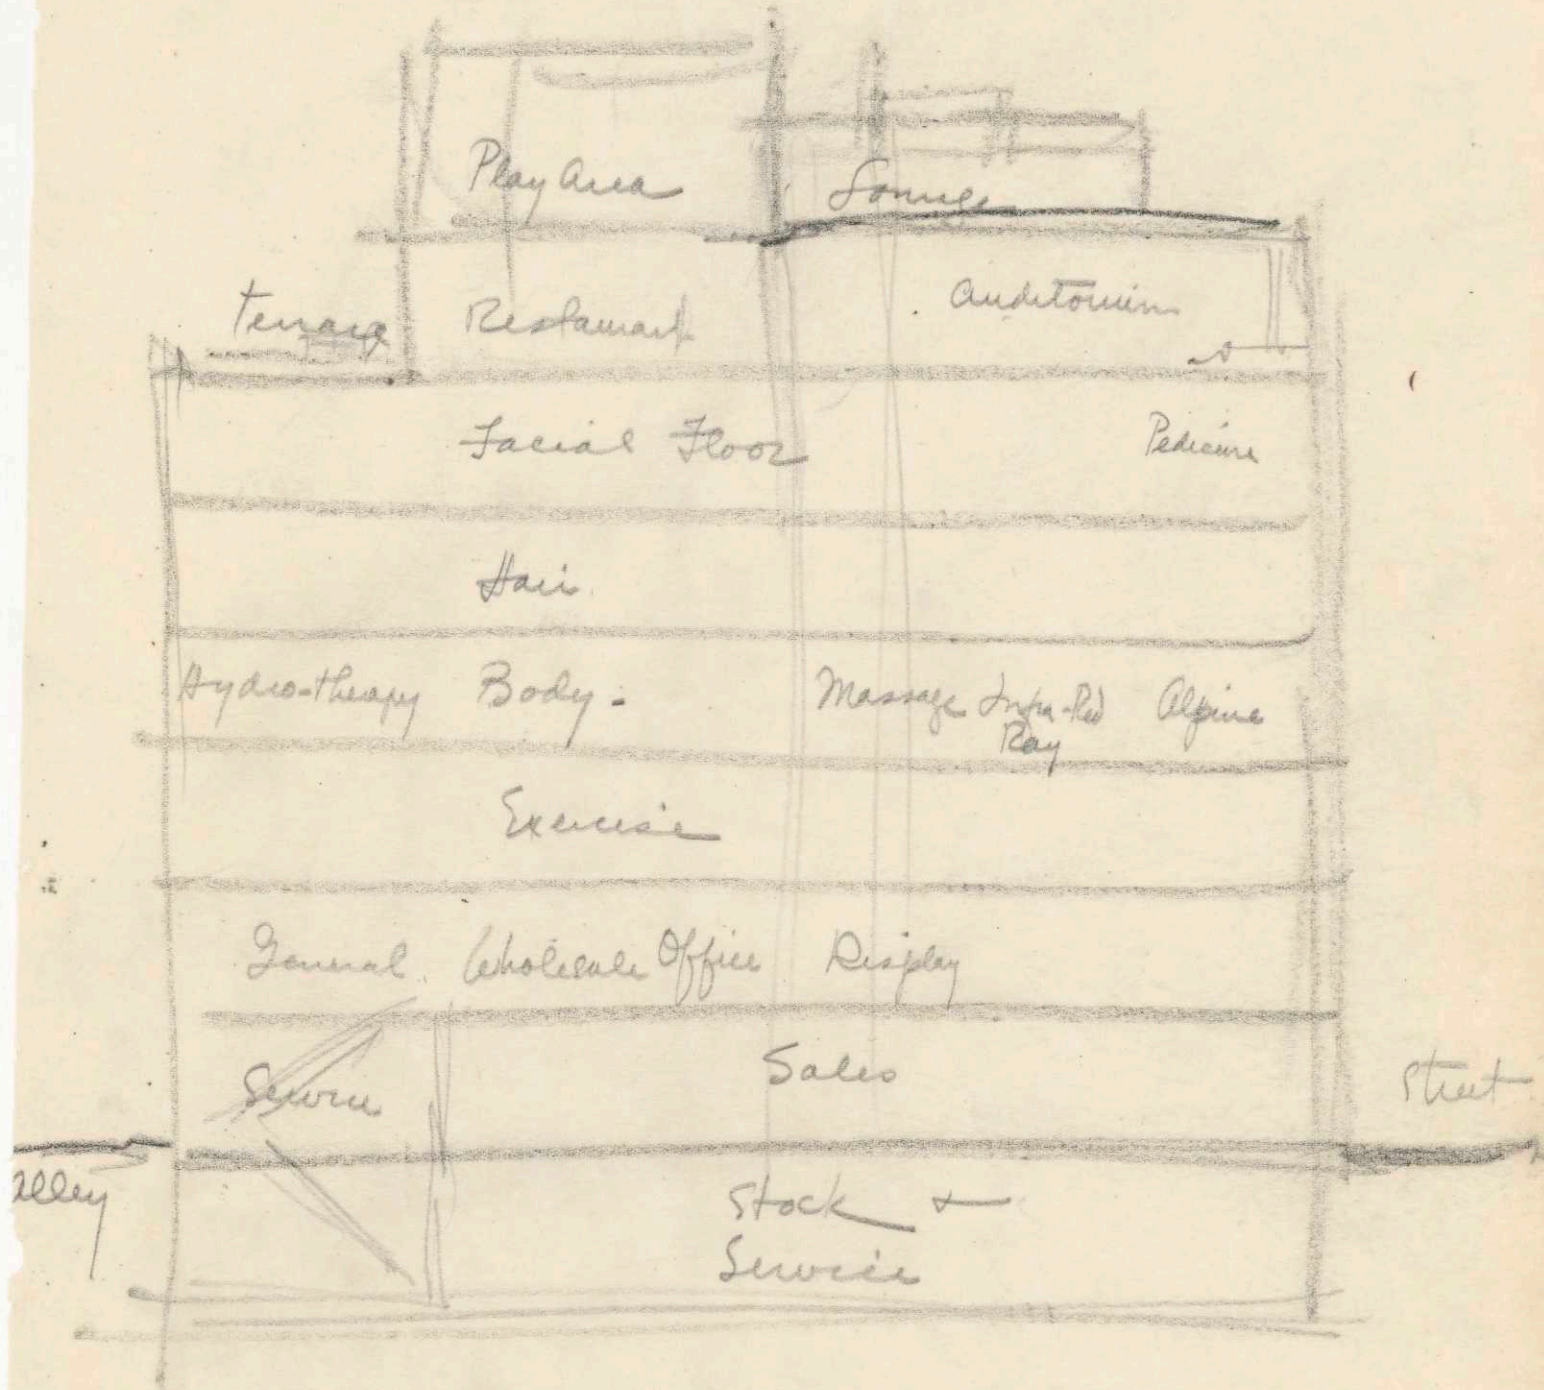 Play Area Lounge
Terrace Restaurant Auditorium
Facial Floor Pedicure
Hair
Hydro-therapy Body - Massage Infra-Red Alpine
Ray
Exercise
General Wholesale Office Display
Service Sales Street
Alley
Stock +
Service